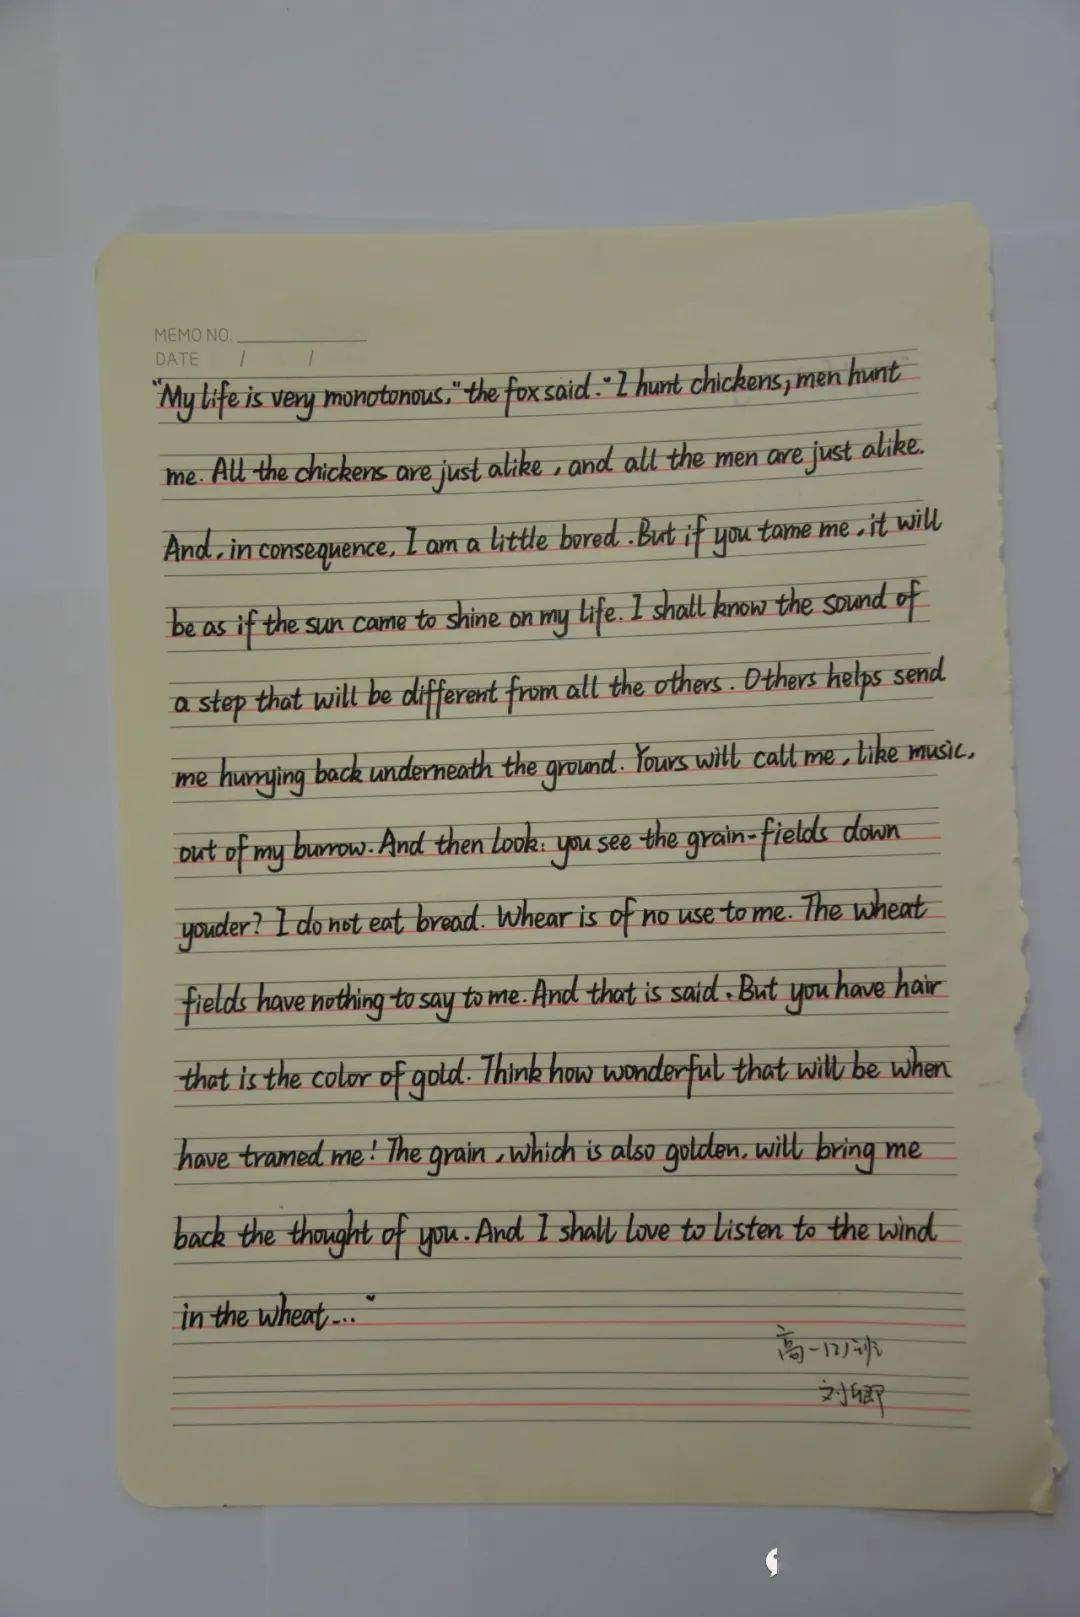 MEMO NO.
DATE / /
"My life is very monotonous," the fox said. "I hunt chickens, men hunt
me. All the chickens are just alike, and all the men are just alike.
And, in consequence, I am a little bored. But if you tame me, it will
be as if the sun came to shine on my life. I shall know the sound of
a step that will be different from all the others. Others helps send
me hurrying back underneath the ground. Yours will call me, like music,
out of my burrow. And then look: you see the grain-fields down
youder? I do not eat bread. Whear is of no use to me. The wheat
fields have nothing to say to me. And that is said. But you have hair
that is the color of gold. Think how wonderful that will be when
have tramed me! The grain, which is also golden, will bring me
back the thought of you. And I shall love to listen to the wind
in the wheat..."
高一(2)班
刘